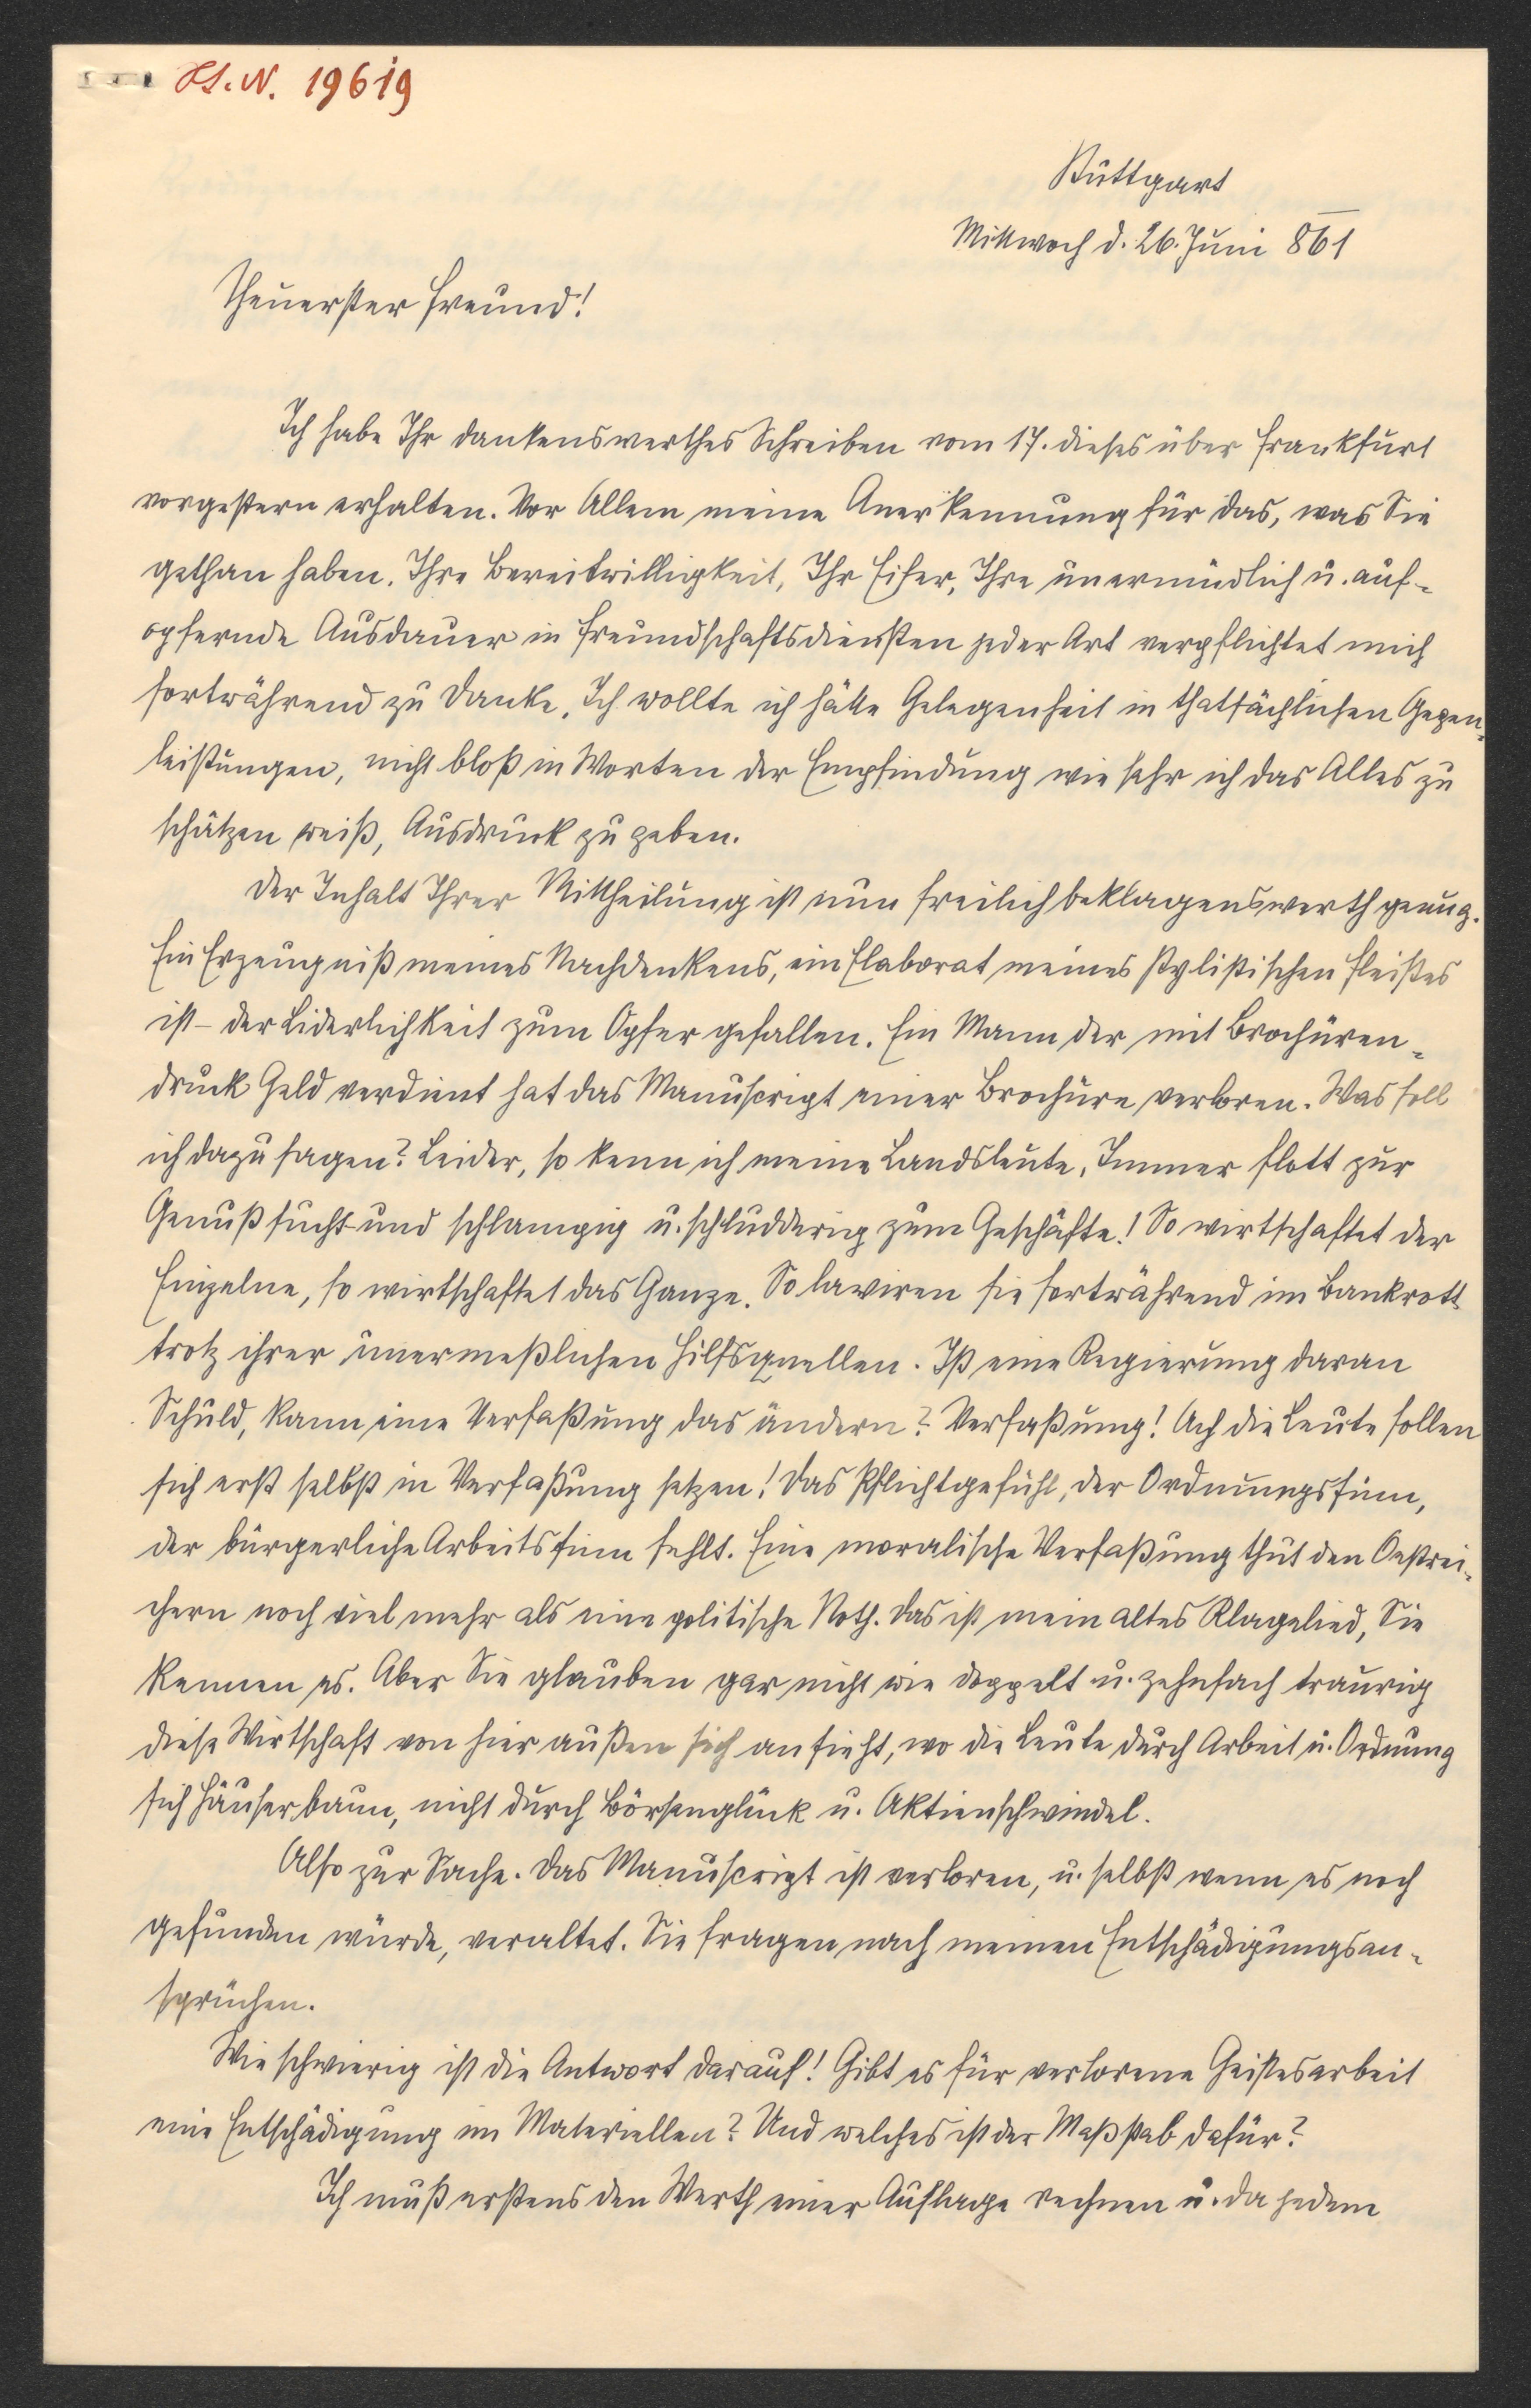 H.I.N. 19619
Stuttgart
Mittwoch d. 26. Juni 861
Theuerster Freund!
Ich habe Ihr dankenswerthes Schreiben vom 17. dieses über Frankfurt
vorgestern erhalten. Vor Allem meine Anerkennung für das, was Sie
gethan haben. Ihre Bereitwilligkeit, Ihr Eifer, Ihre unermüdlich u. auf-
opfernde Ausdauer in Freundschaftsdiensten jeder Art verpflichtet mich
fortwährend zu Danke. Ich wollte ich hätte Gelegenheit in thatsächlichen Gegen-
leistungen, nicht bloß in Worten der Empfindung wie sehr ich das Alles zu
schätzen weiß, Ausdruck zu geben.
Der Inhalt Ihrer Mittheilung ist nun freilich beklagenswerth genug.
Ein Erzeugniß meines Nachdenkens, ein Elaborat meines stylistischen Fleißes
ist – der Liderlichkeit zum Opfer gefallen. Ein Mann der mit Brochüren-
druck Geld verdient hat das Manuscript einer Brochüre verloren. Was soll
ich dazu sagen? Leider, so kenn ich meine Landsleute. Immer flott zur
Genußsucht und schlampig u. schludderig zum Geschäfte! So wirtschaftet der
Einzelne, so wirtschaftet das Ganze. So laviren sie fortwährend im Bankrott
trotz ihrer unermeßlichen Hilfsquellen. Ist eine Regierung daran
Schuld, kann eine Verfaßung das ändern? Verfaßung! Ach die Leute sollen
sich erst selbst in Verfaßung setzen! Das Pflichtgefühl, der Ordnungssinn,
der bürgerliche Arbeitssinn fehlt. Eine moralische Verfaßung thut den Oestrei-
chern noch viel mehr als eine politische Noth. Das ist mein altes Klagelied, Sie
kennen es. Aber Sie glauben gar nicht wie doppelt u. zehnfach traurig
diese Wirtschaft von hier außen sich ansieht, wo die Leute durch Arbeit u. Ordnung
sich Häuser baun, nicht durch Börsenglück u. Aktienschwindel.
Also zur Sache. Das Manuscript ist verloren, u. selbst wenn es noch
gefunden würde, veraltet. Sie fragen nach meinen Entschädigungsan-
sprüchen.
Wie schwierig ist die Antwort darauf! Gibt es für verlorene Geistesarbeit
eine Entschädigung im Materiellen? Und welches ist der Maßstab dafür?
Ich muß erstens den Werth einer Auflage rechnen u. da jedem